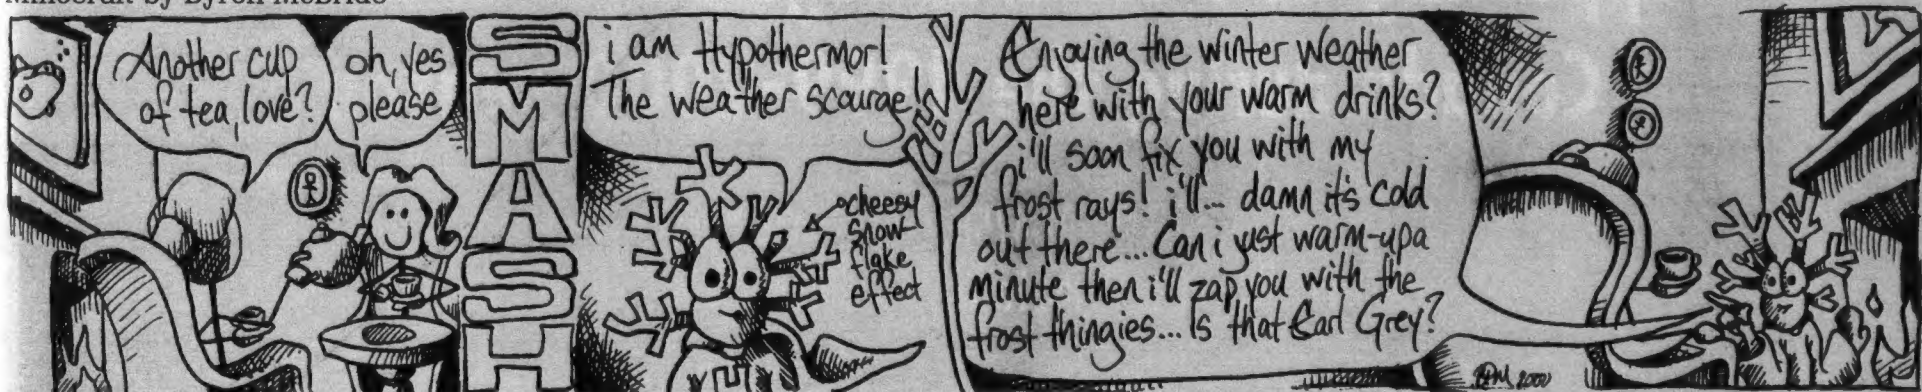 Minecraft by Byron McBride
Another cup
of tea, love?
oh, yes
please
SMASH
i am Hypothermor!
The weather scourge!
cheesy
snow
flake
effect
Enjoying the winter weather
here with your warm drinks?
i'll soon fix you with my
frost rays! i'll... damn it's cold
out there.... Can i just warm-up a
minute then i'll zap you with the
frost thingies... Is that Earl Grey?
2000